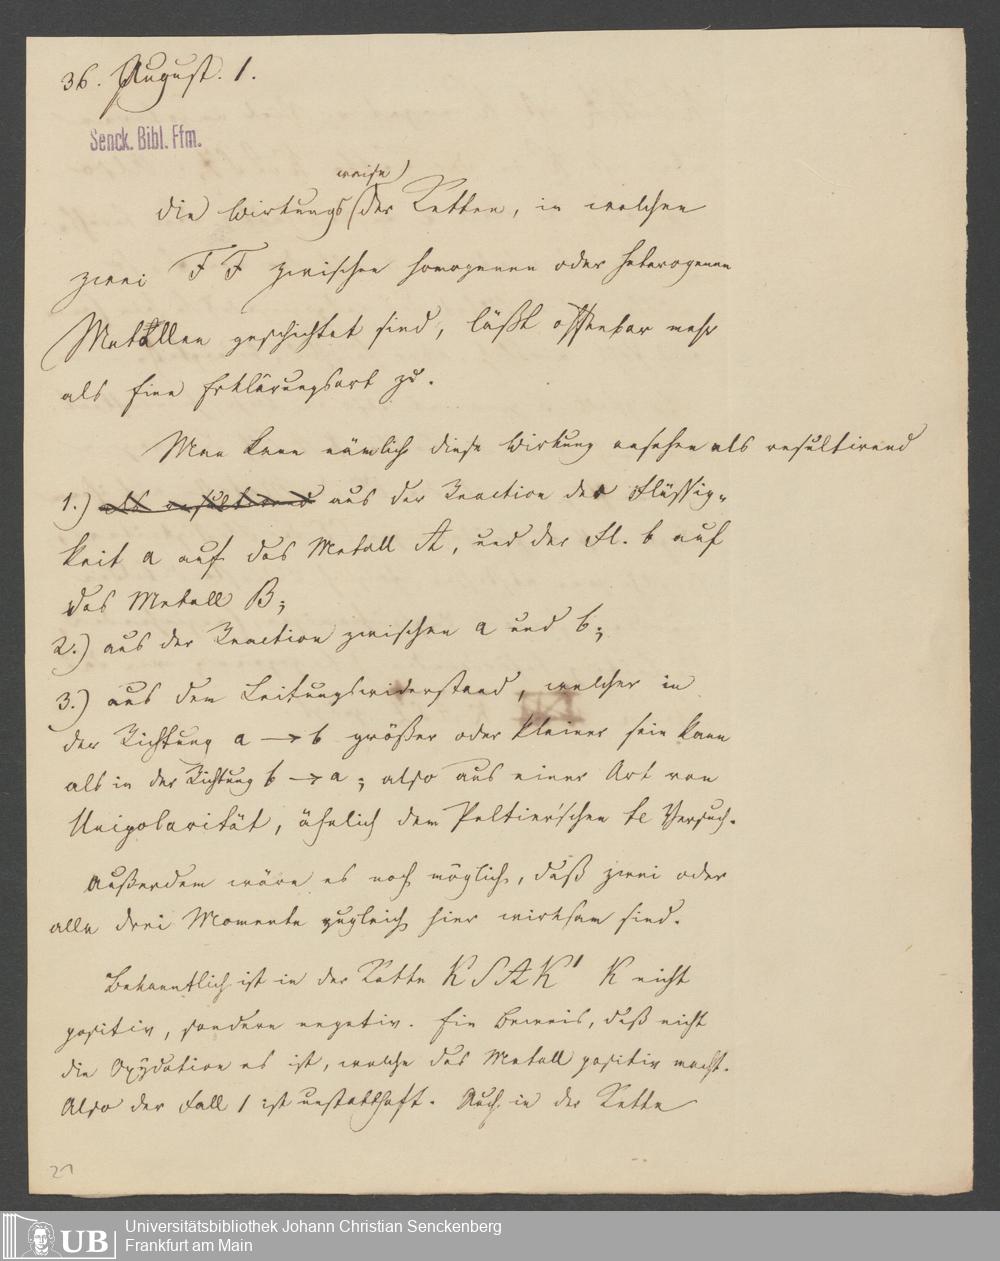 36. August. 1.
Senck. Bibl. Ffm.
weise
Die Wirkungs der Ketten, in welchen
zwei F F zwischen homogenen oder heterogenen
Metallen geschichtet sind, läßt offenbar mehr
als Eine Erklärungsart zu.
Man kann nämlich diese Wirkung ansehen als resultirend
1.) als resultirend aus der Reaction der Flüssig-
keit a auf das Metall A, und der Fl. b auf
das Metall B;
2.) aus der Reaction zwischen a und b;
3.) aus dem Leitungswiderstand, welcher in
der Richtung a → b größer oder kleiner sein kann
als in der Richtung b → a; also aus einer Art von
Unipolarität, ähnlich dem Peltier'schen Versuch.
Außerdem wäre es noch möglich, daß zwei oder
alle drei Momente zugleich hier wirksam sind.
Bekanntlich ist in der Kette K S A K' K nicht
positiv, sondern negativ. Ein Beweis, daß nicht
die Oxydation es ist, welche das Metall positiv macht.
Also der Fall 1 ist unstatthaft. Auch in der Kette
21
UB
Universitätsbibliothek Johann Christian Senckenberg
Frankfurt am Main